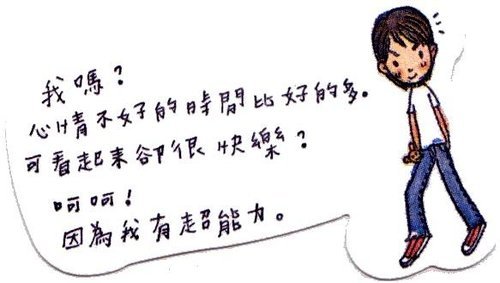 我嗎？
心情不好的時間比好的多。
可看起來卻很快樂？
呵呵！
因為我有超能力。